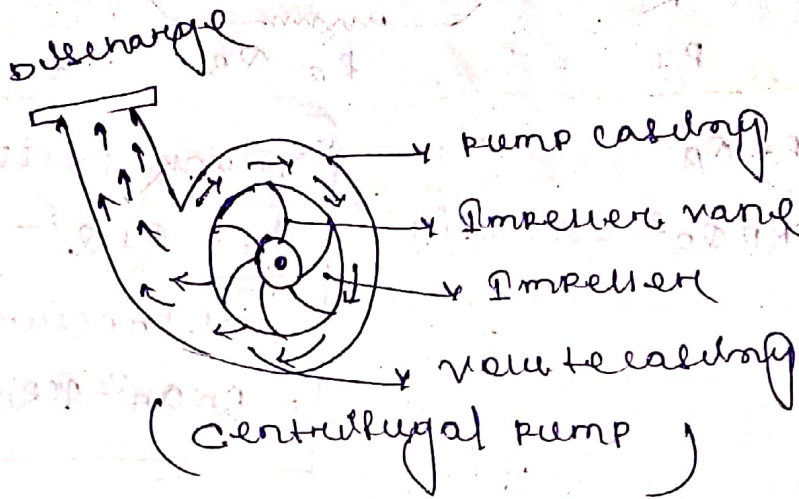 Discharge
Pump casing
Impeller vane
Impeller
Volute casing
(Centrifugal pump)